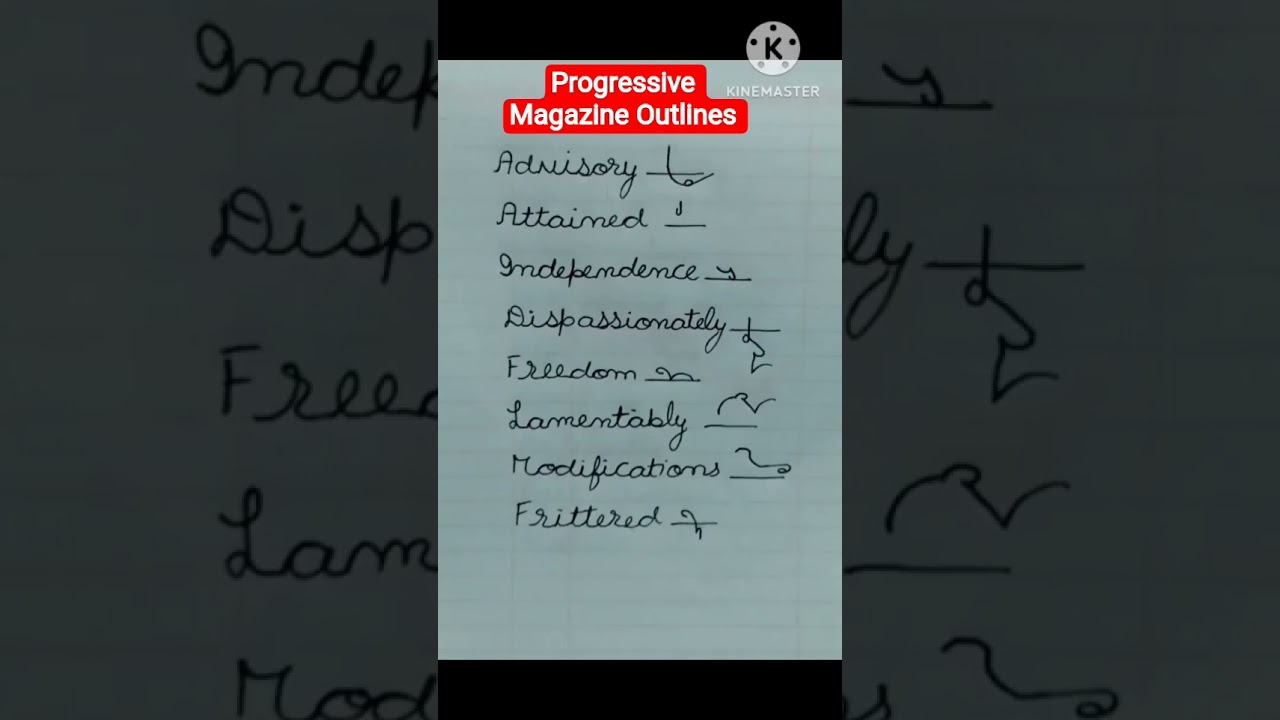 Progressive
Magazine Outlines
KINEMASTER
Advisory
Attained
Independence
Dispassionately
Freedom
Lamentably
Modifications
Frittered